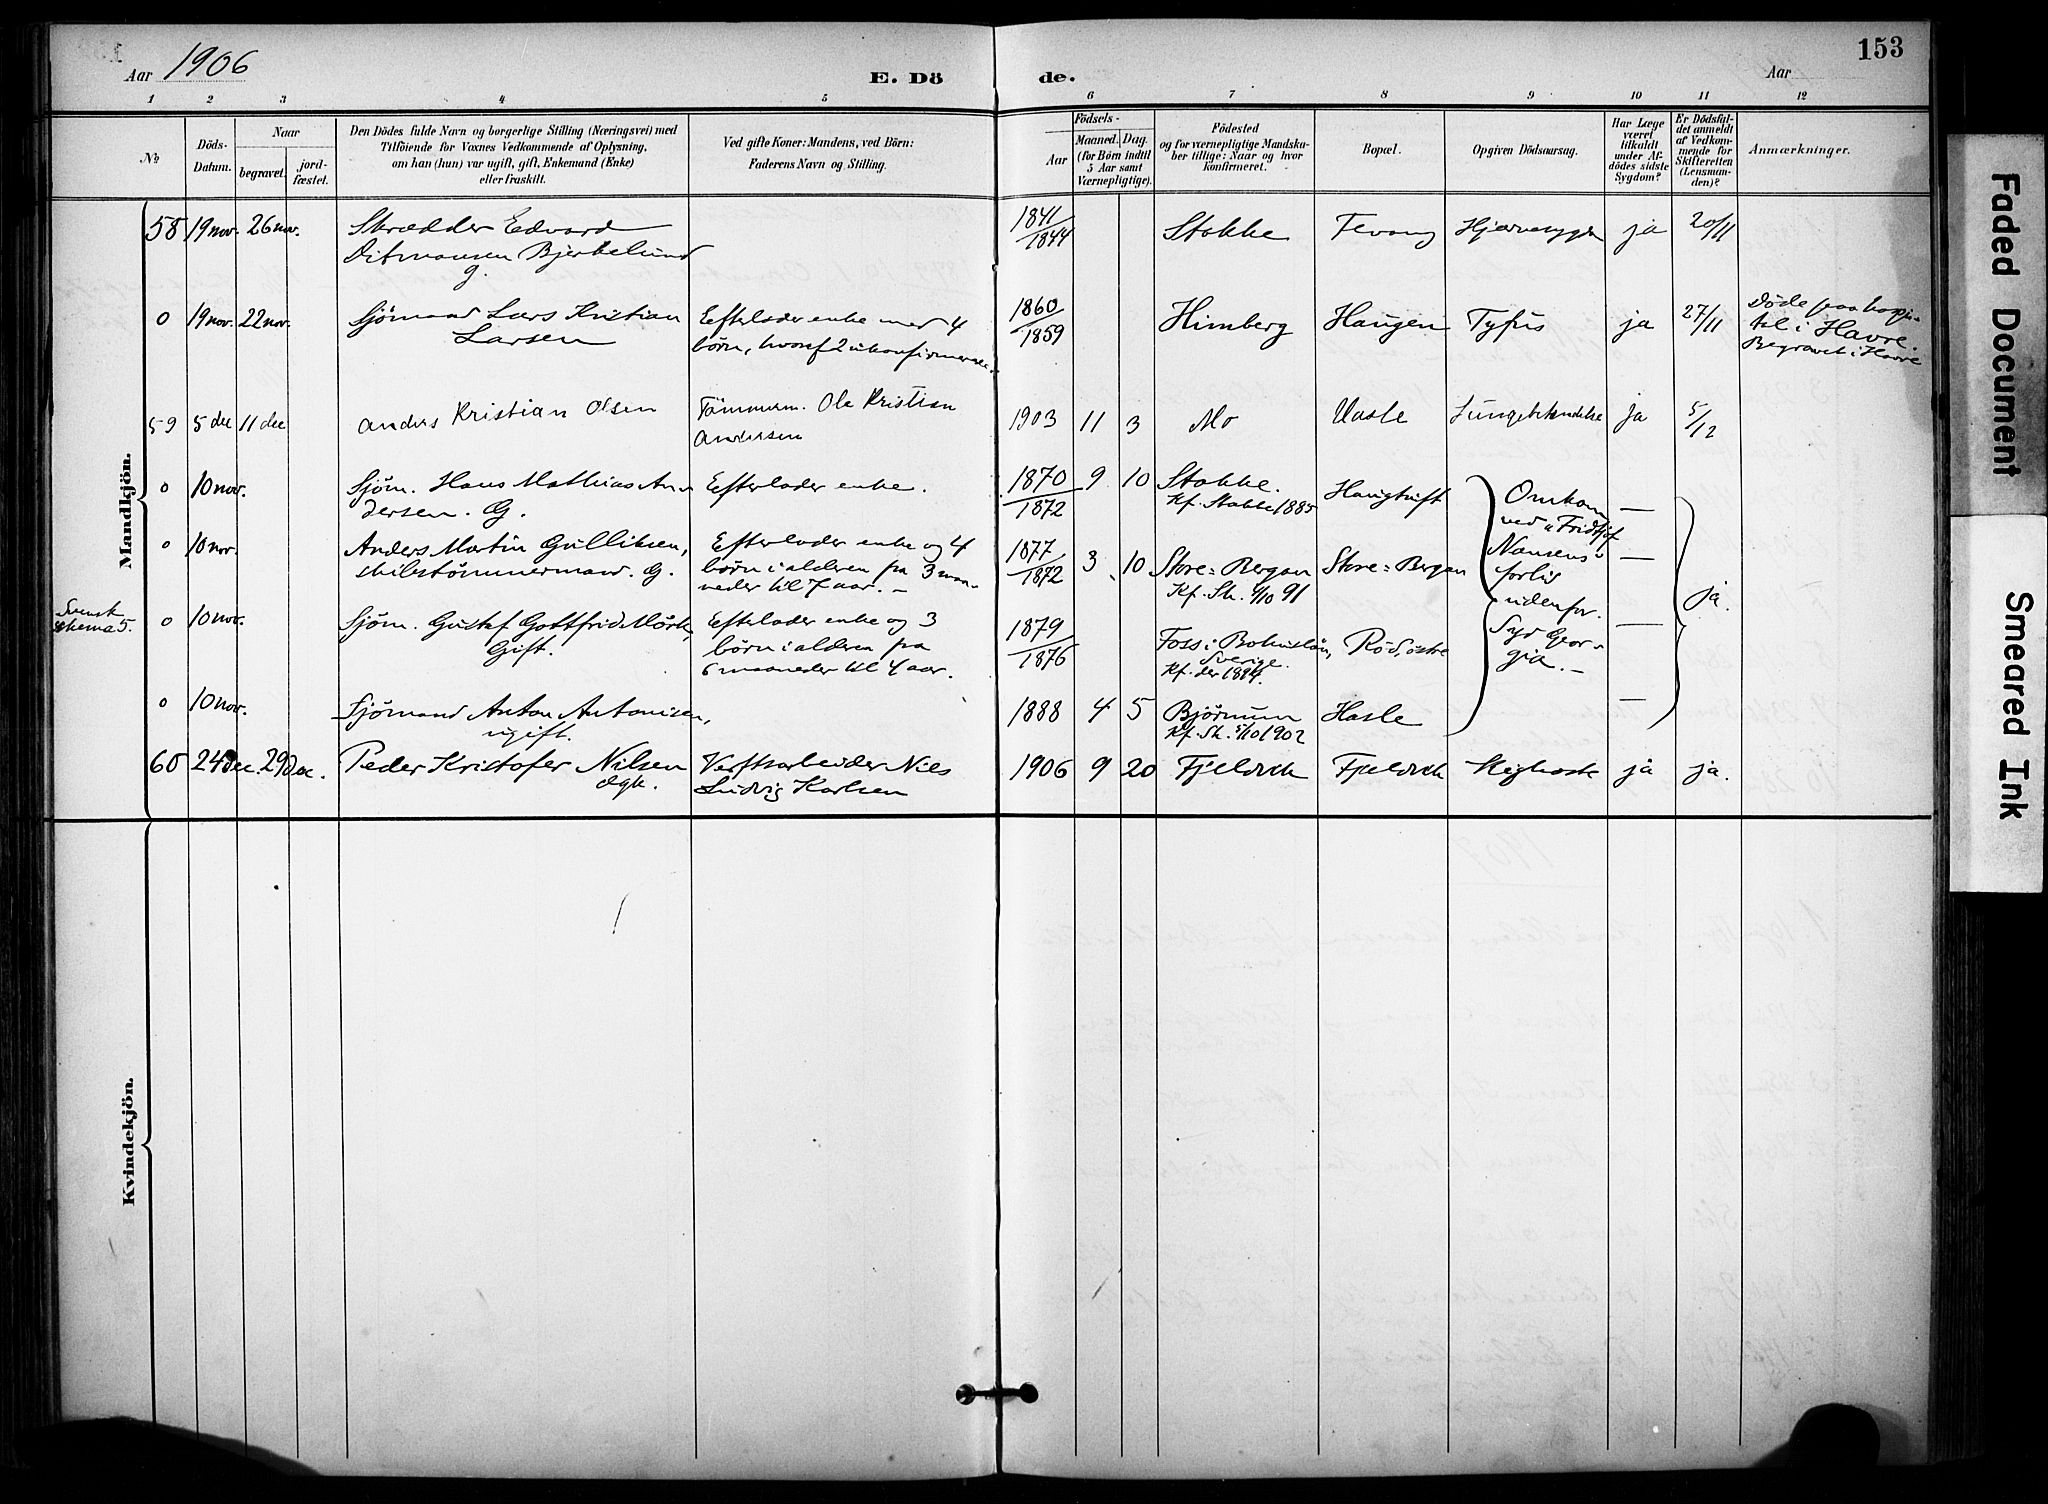 Aar 1906
E. Dö
de.
Aar
153
1 2 3 4 5 6 7 8 9 10 11 12
No
Döds-
Datum.
Naar
begravet.
jord-
fæstet.
Den Dödes fulde Navn og borgerlige Stilling (Næringsvei) med
Tilföiende for Voxnes Vedkommende af Oplysning,
om han (hun) var ugift, gift, Enkemand (Enke)
eller fraskilt.
Ved gifte Koner: Mandens, ved Börn:
Faderens Navn og Stilling.
Födsels-
Aar
Maaned.
Dag.
(for Börn indtil
5 Aar samt
Værnepligtige).
Födested
og for værnepligtige Mandska-
ber tillige: Naar og hvor
konfirmeret.
Bopæl.
Opgiven Dödsaarsag.
Har Læge
været
tilkaldt
under Af-
dödes sidste
Sygdom?
Er Dödsfal-
det anmeldt
af Vedkom-
mende for
Skifteretten
(Lensman-
den)?
Anmærkninger.
Mandkjön.
58 19 nov. 26 nov. Skrædder Edvard
Ditmansen Bjerkelund
g.
1841/1844 Stokke Fevang Hjertesygdom ja 20/11
0 19 nov. 22 nov. Sjömand Lars Kristian
Larsen
Efterlader enke med 4
børn, hvoraf 2 ukonfirmerte.
1860/1859 Himberg Haugen Tyfus ja 27/11
Døde paa hospi-
tal i Havre.
Begravet i Havre
59 5 dec 11 dec Anders Kristian Olsen
Tömmerm. Ole Kristian
Andersen
1903 11 3 Mo Hasle Lungebetændelse ja 5/12
0 10 nov. Sjöm. Hans Mathias An-
dersen. G.
Efterlader enke.
1870/1872 9 10 Stokke.
Kf. Stokke 1885
—
0 10 nov. Anders Martin Gulliksen,
skibstömmermand. G.
Efterlader enke og 4
børn i alderen fra 3 maa-
neder til 7 aar. —
1877/1872 3 10 Store=Bergan
Kf. St. 4/10 91
Store=Bergan
—
Svensk
skema 5.
0 10 nov. Sjöm. Gustaf Gottfrid Mörk,
Gift.
Efterlader enke og 3
børn i alderen fra
6 maaneder til 4 aar.
1879/1876 Foss i Bohuslän,
Sverige.
Kf. der 1894.
Röd, östre
—
Omkom
ved "Fridtjof
Nansens"
forlis
udenfor
Syd Geor-
gia. —
ja.
0 10 nov. Sjömand Anton Antonisen,
ugift.
1888 4 5 Bjørnum
Kf. St. /10 1902
Hasle
—
60 24 dec. 29 dec. Peder Kristofer Nilsen
dgk.
Verftsarbeider Nils
Ludvig Karlsen
1906 9 20 Fjeldvik Fjeldvik Kighoste ja ja.
Kvindekjön.
Faded Document
Smeared Ink